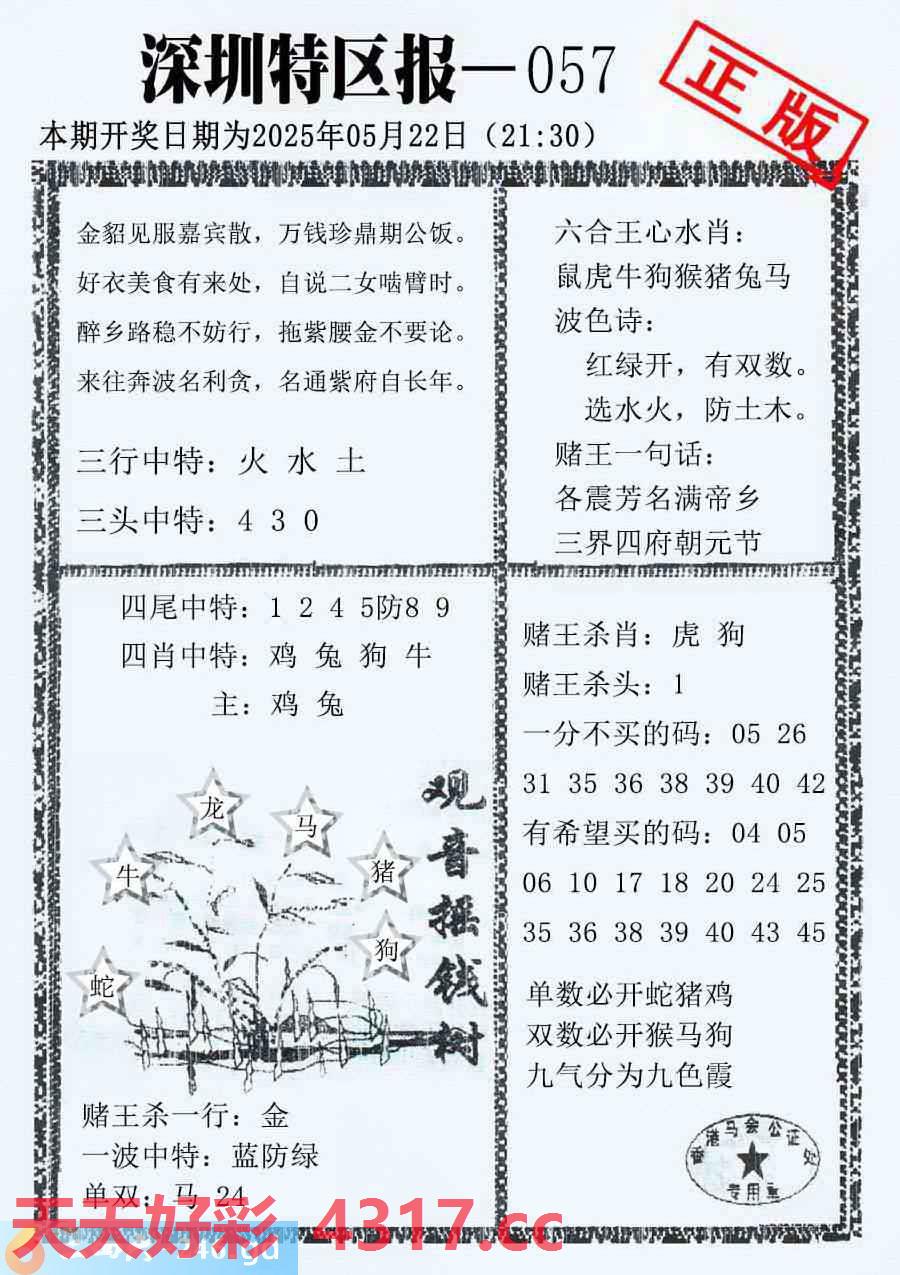 深圳特区报—057
正版
本期开奖日期为2025年05月22日（21:30）
金貂见服嘉宾散，万钱珍鼎期公饭。
好衣美食有来处，自说二女啮臂时。
醉乡路稳不妨行，拖紫腰金不要论。
来往奔波名利贪，名通紫府自长年。
三行中特：火 水 土
三头中特：4 3 0
六合王心水肖：
鼠虎牛狗猴猪兔马
波色诗：
红绿开，有双数。
选水火，防土木。
赌王一句话：
各震芳名满帝乡
三界四府朝元节
四尾中特：1 2 4 5防8 9
四肖中特：鸡 兔 狗 牛
主：鸡 兔
观音摇钱树
龙
马
牛
猪
狗
蛇
赌王杀一行：金
一波中特：蓝防绿
单双：马 24
赌王杀肖：虎 狗
赌王杀头：1
一分不买的码：05 26
31 35 36 38 39 40 42
有希望买的码：04 05
06 10 17 18 20 24 25
35 36 38 39 40 43 45
单数必开蛇猪鸡
双数必开猴马狗
九气分为九色霞
香港马会公证处
专用章
天天好彩 4317.cc